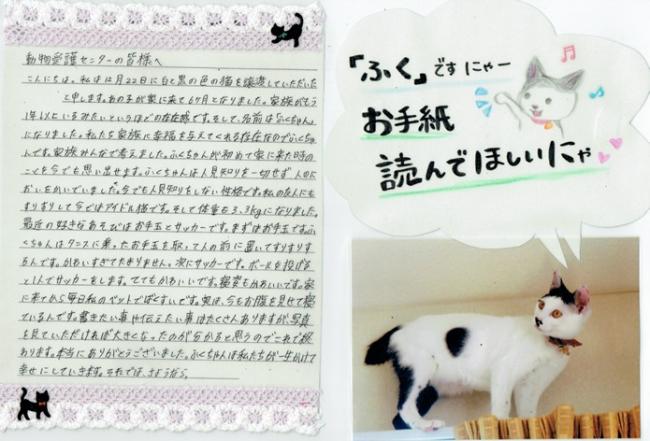 動物愛護センターの皆様へ
こんにちは。私は12月22日に白と黒の色の猫を譲渡していただいた
と申します。あの子が家に来て6ヶ月となりました。家族がもう
1年以上いるみたいというほどの存在感です。そして、名前は「ふくちゃん」に
なりました。私たち家族に幸福を与えてくれる存在なのでふくちゃ
んです。家族みんなで考えました。ふくちゃんが初めて家に来た時の
ことを今でも思い出せます。ふくちゃんは人見知りを一切せず人のに
おいをかいでいました。今でも人見知りをしない性格です。私の友人にも
すりすりして今ではアイドル猫です。そして体重も3.3kgになりました。
最近の好きなあそびはお手玉とサッカーです。まずはお手玉です。ふ
くちゃんはタンスに乗ったお手玉を取って人の前に置いてすりすりす
るんです。かわいすぎてたまりません。次にサッカーです。ボールを投げる
と1人でサッカーをします。とてもかわいいです。寝姿もかわいいです。家
に来てから毎日私のベットでばくすいです。実は、今もお腹を見せて寝
ているんです。書きたい事や伝えたい事はたくさんありますが、写真
を見ていただければ大きくなったのが分かると思うのでこれで終
わります。本当にありがとうございました。ふくちゃんは私たちが一生かけて
幸せにしていきます。それでは、さようなら。
「ふく」ですにゃー
お手紙
読んでほしいにゃ